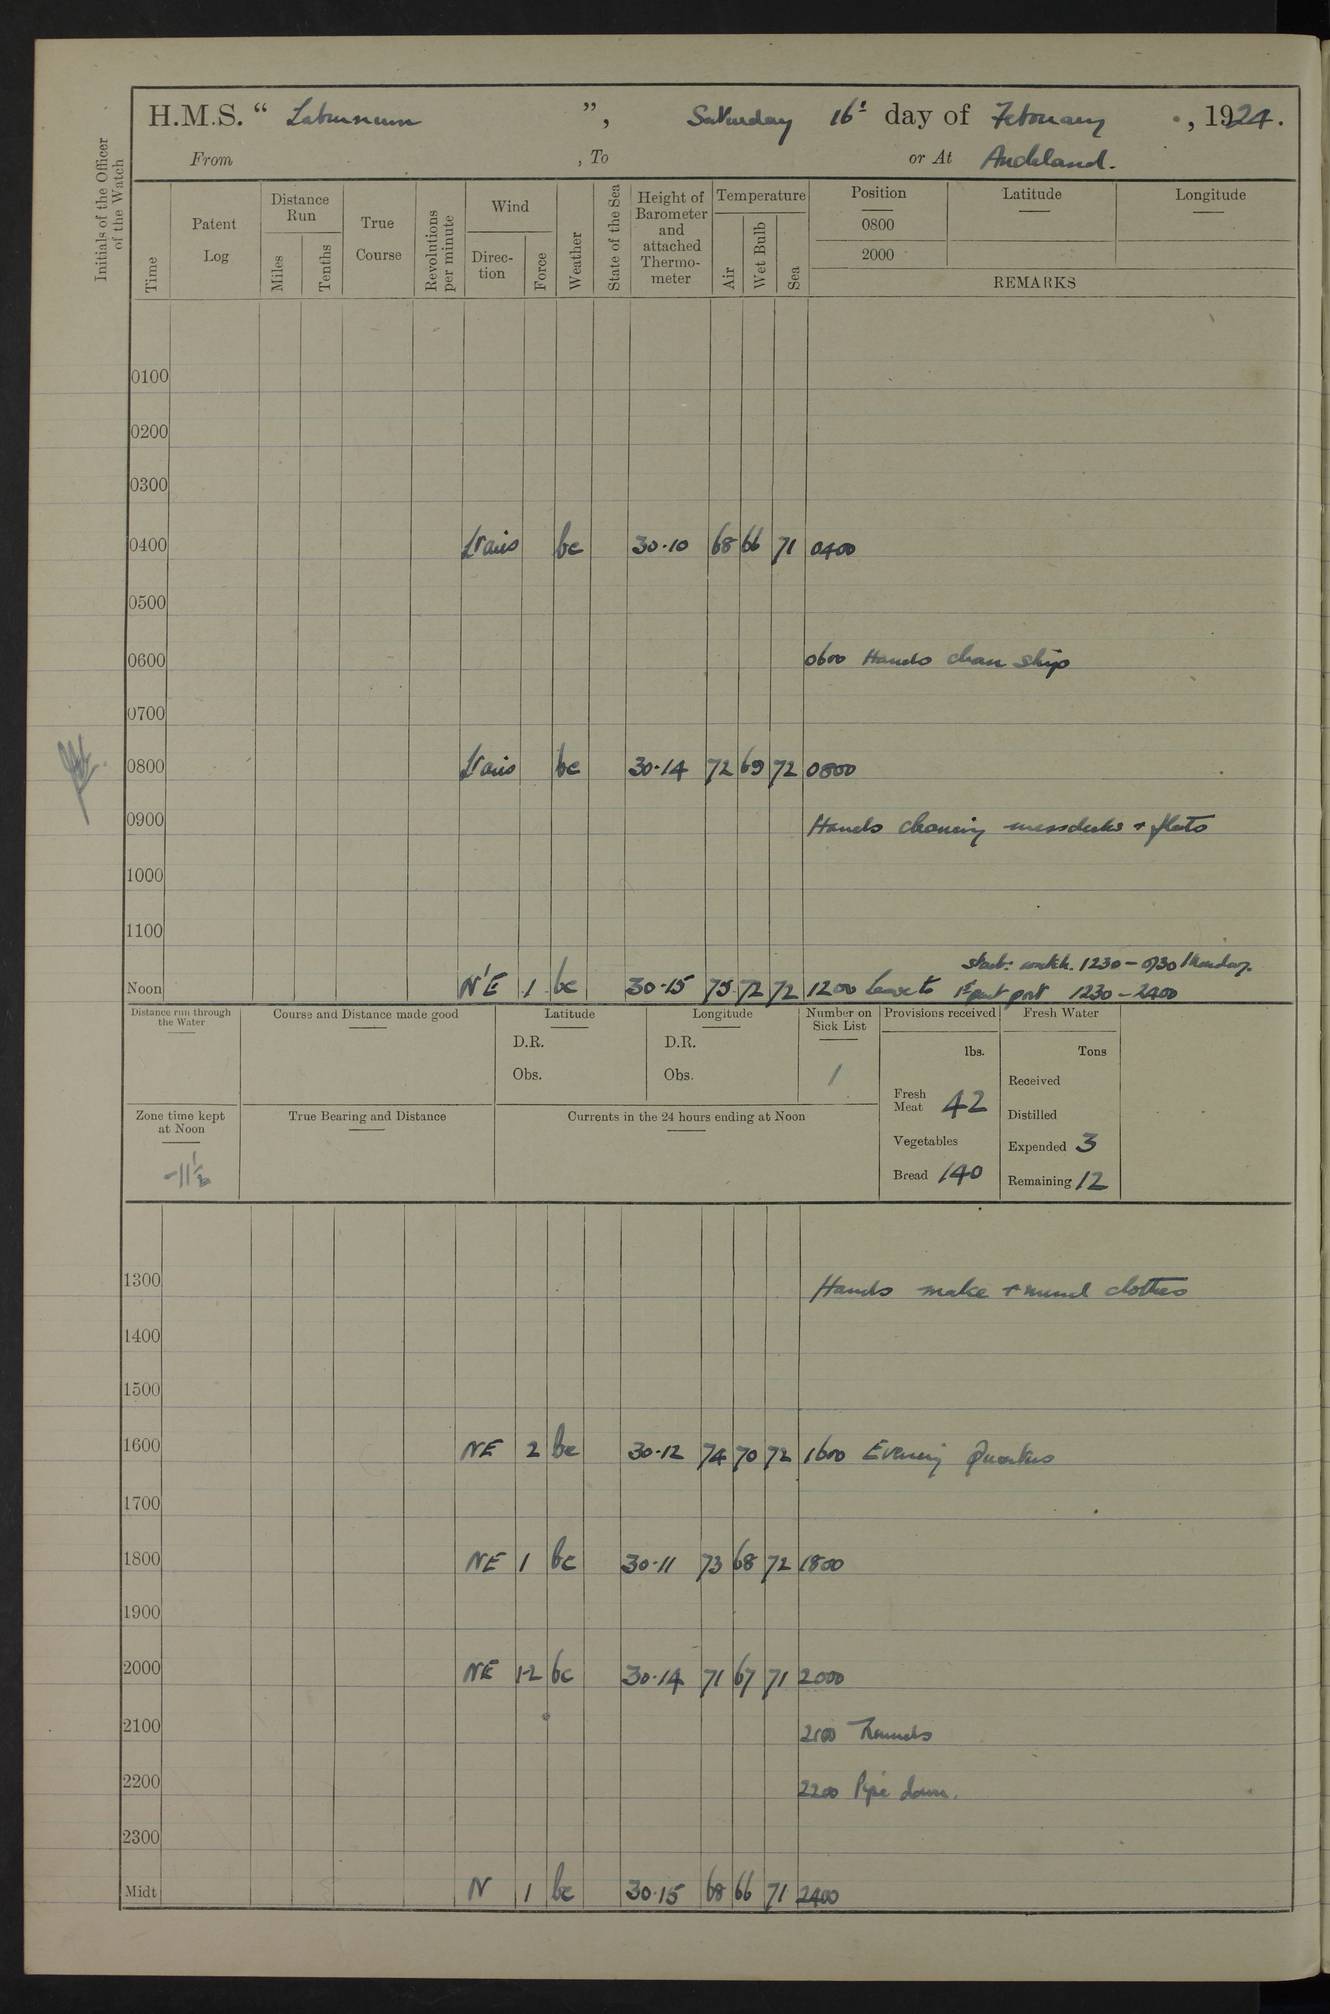 H.M.S. “ Laburnum ”, Saturday 16th day of February, 1924.
From , To or At Auckland.
Initials of the Officer of the Watch
Time Patent Log Distance Run Miles Tenths True Course Revolutions per minute Wind Direction Force Weather State of the Sea Height of Barometer and attached Thermometer Temperature Air Wet Bulb Sea Position 0800 2000 Latitude Longitude
REMARKS
0100
0200
0300
0400 Lt airs bc 30.10 68 66 71 0400
0500
0600 0600 Hands clean ship
0700
0800 Lt airs bc 30.14 72 69 72 0800
0900 Hands cleaning messdecks + flats
1000
1100
Starb: watch. 1230 - 0730 Monday.
Noon N'E 1 bc 30.15 75 72 72 1200 Leave to 1st part port 1230 - 2400
Distance run through the Water Course and Distance made good Latitude Longitude Number on Sick List Provisions received Fresh Water
D.R. D.R. lbs. Tons
Obs. Obs. 1 Received
Fresh Meat 42
Zone time kept at Noon True Bearing and Distance Currents in the 24 hours ending at Noon Distilled
Vegetables Expended 3
-11½ Bread 140 Remaining 12
1300 Hands make + mend clothes
1400
1500
1600 NE 2 bc 30.12 74 70 72 1600 Evening Quarters
1700
1800 NE 1 bc 30.11 73 68 72 1800
1900
2000 NE 1-2 bc 30.14 71 67 71 2000
2100 2100 Rounds
2200 2200 Pipe down.
2300
Midt N 1 bc 30.15 68 66 71 2400